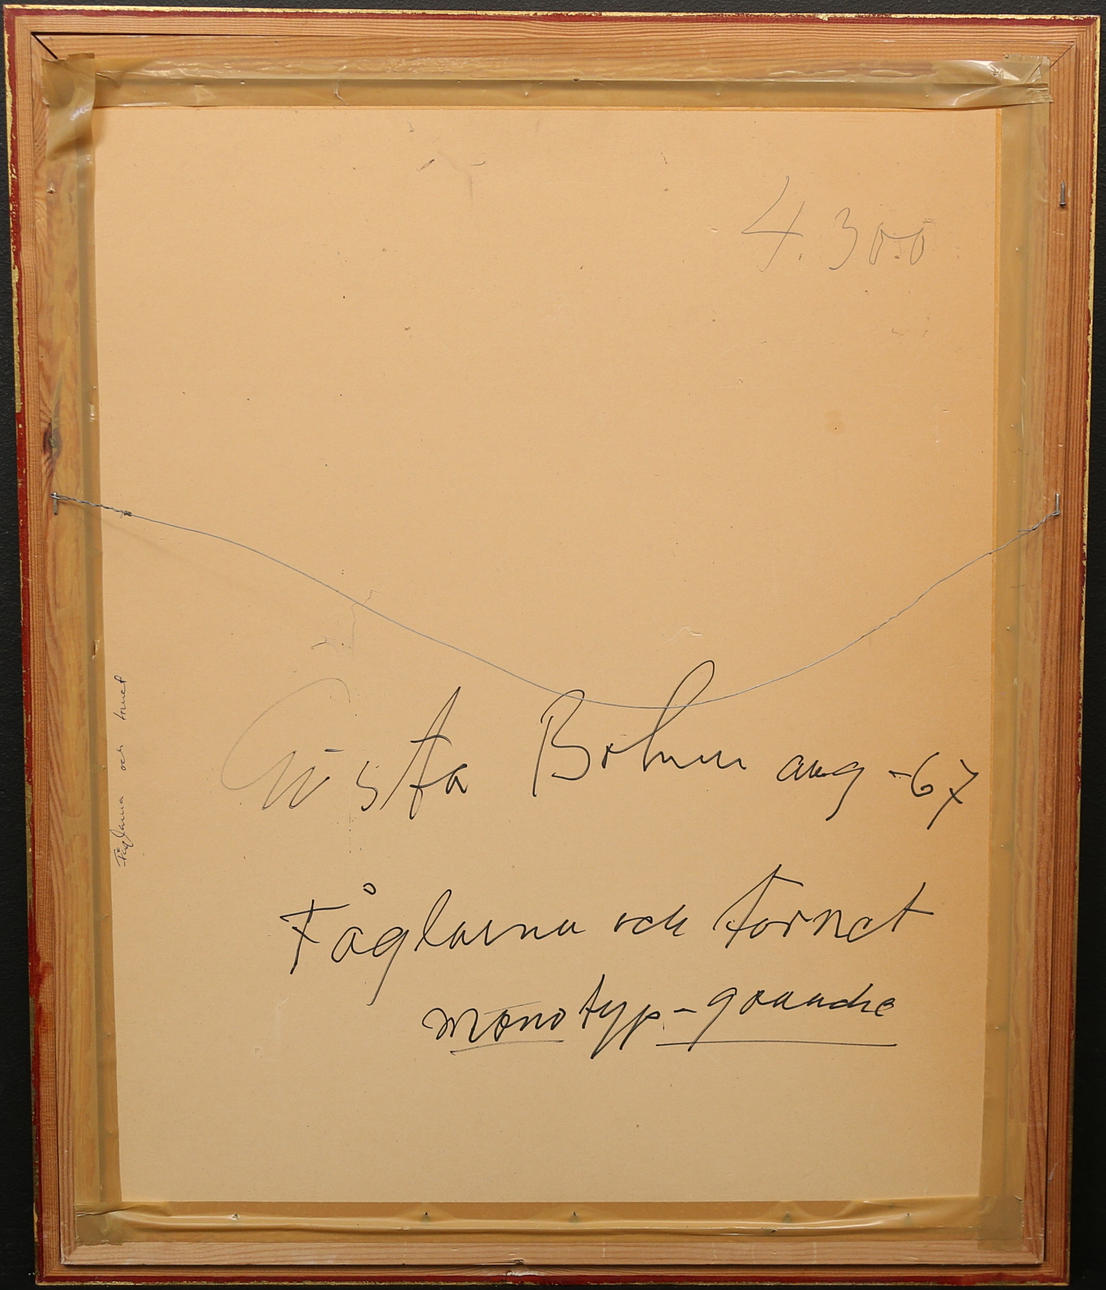 4.300
Gösta Bohm aug -67
Fåglarna och tornet
monotyp-gouache
Fåglarna och tornet